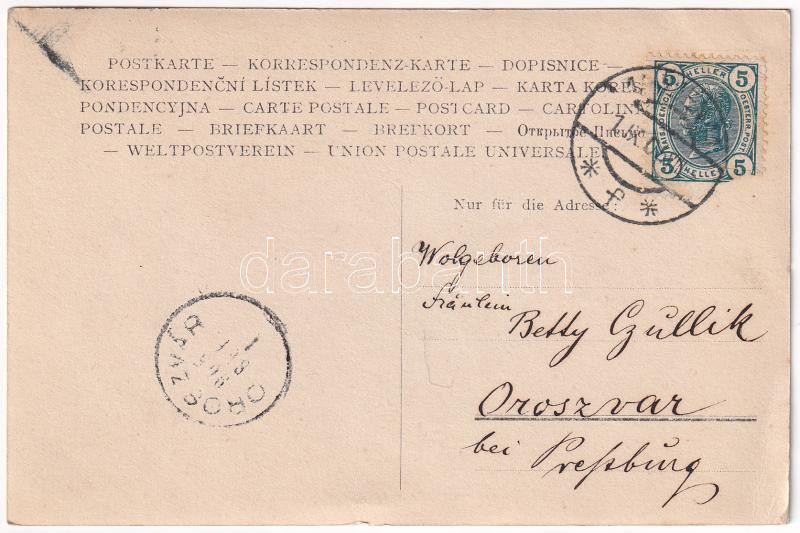 POSTKARTE — KORRESPONDENZ-KARTE — DOPISNICE —
KORESPONDENČNÍ LÍSTEK — LEVELEZÖ-LAP — KARTA KORES-
PONDENCYJNA — CARTE POSTALE — POSTCARD — CARTOLINA
POSTALE — BRIEFKAART — BREFKORT — Открытое Письмо
— WELTPOSTVEREIN — UNION POSTALE UNIVERSALE
5 HELLER 5
OESTERR. POST
5 HELLER 5
Nur für die Adresse:
Wolgeboren
Fräulein
Betty Czullik
Oroszvar
bei Preßburg
OROSZVÁR
darabanth